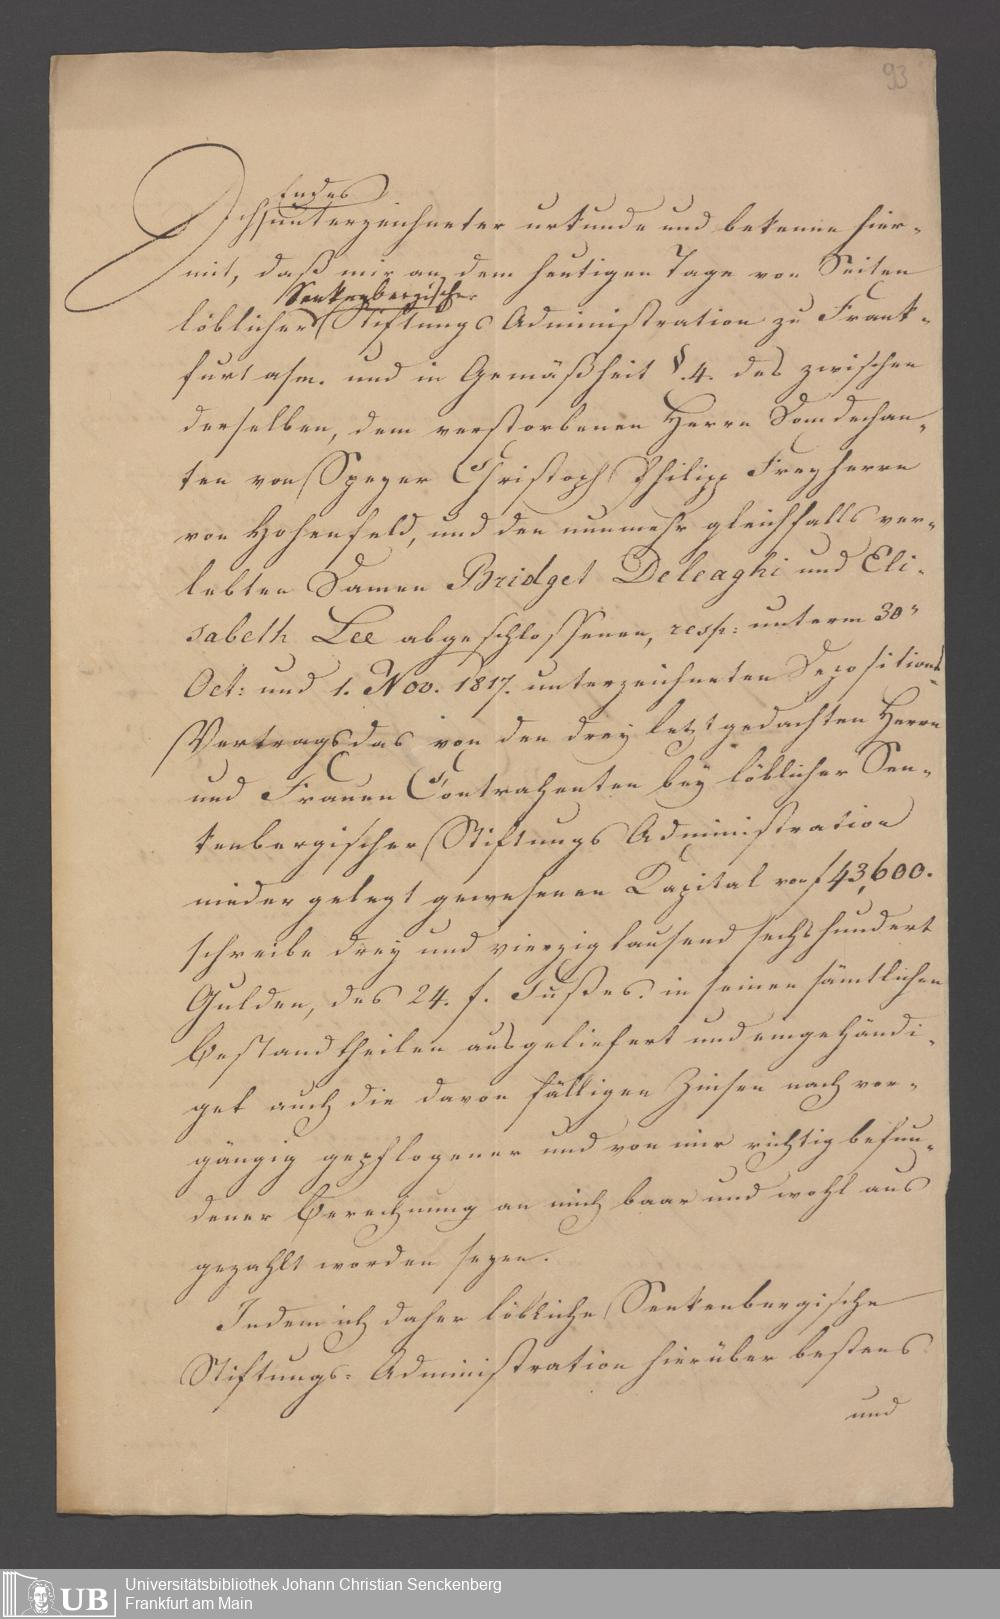 93
Endes
Ich unterzeichneter urkunde und bekenne hier-
mit, daß mir an dem heutigen Tage von Seiten
Senkenbergischer
löblicher Stiftungs Administration zu Frank-
furt a/m. und in Gemäßheit § 4. des zwischen
derselben, dem verstorbenen Herrn Domdechan-
ten von Speyer Christoph Philipp Freyherrn
von Hohenfeld, und den nunmehr gleichfalls ver-
lebten Damen Bridget Deleaghi und Eli-
sabeth Lee abgeschlossenen, resp: unterm 30"
Oct: und 1. Nov. 1817. unterzeichneten Depositions-
Vertrags das von den drey letzt gedachten Herrn
und Frauen Contrahenten bey löblicher Sen-
kenbergischer Stiftungs Administration
nieder gelegt gewesenen Kapital von f 43,600.
schreibe drey und vierzig tausend sechs hundert
Gulden, des 24. f. Fußes. in seinen sämtlichen
Bestandtheilen ausgeliefert und eingehändi-
get auch die davon fälligen Zinsen nach vor-
gängig gepflogener und von mir richtig befun-
dener Berechnung an mich baar und wohl aus
gezahlt worden seyen.
Indem ich daher löbliche Senkenbergische
Stiftungs-Administration hierüber bestens
und
UB
Universitätsbibliothek Johann Christian Senckenberg
Frankfurt am Main